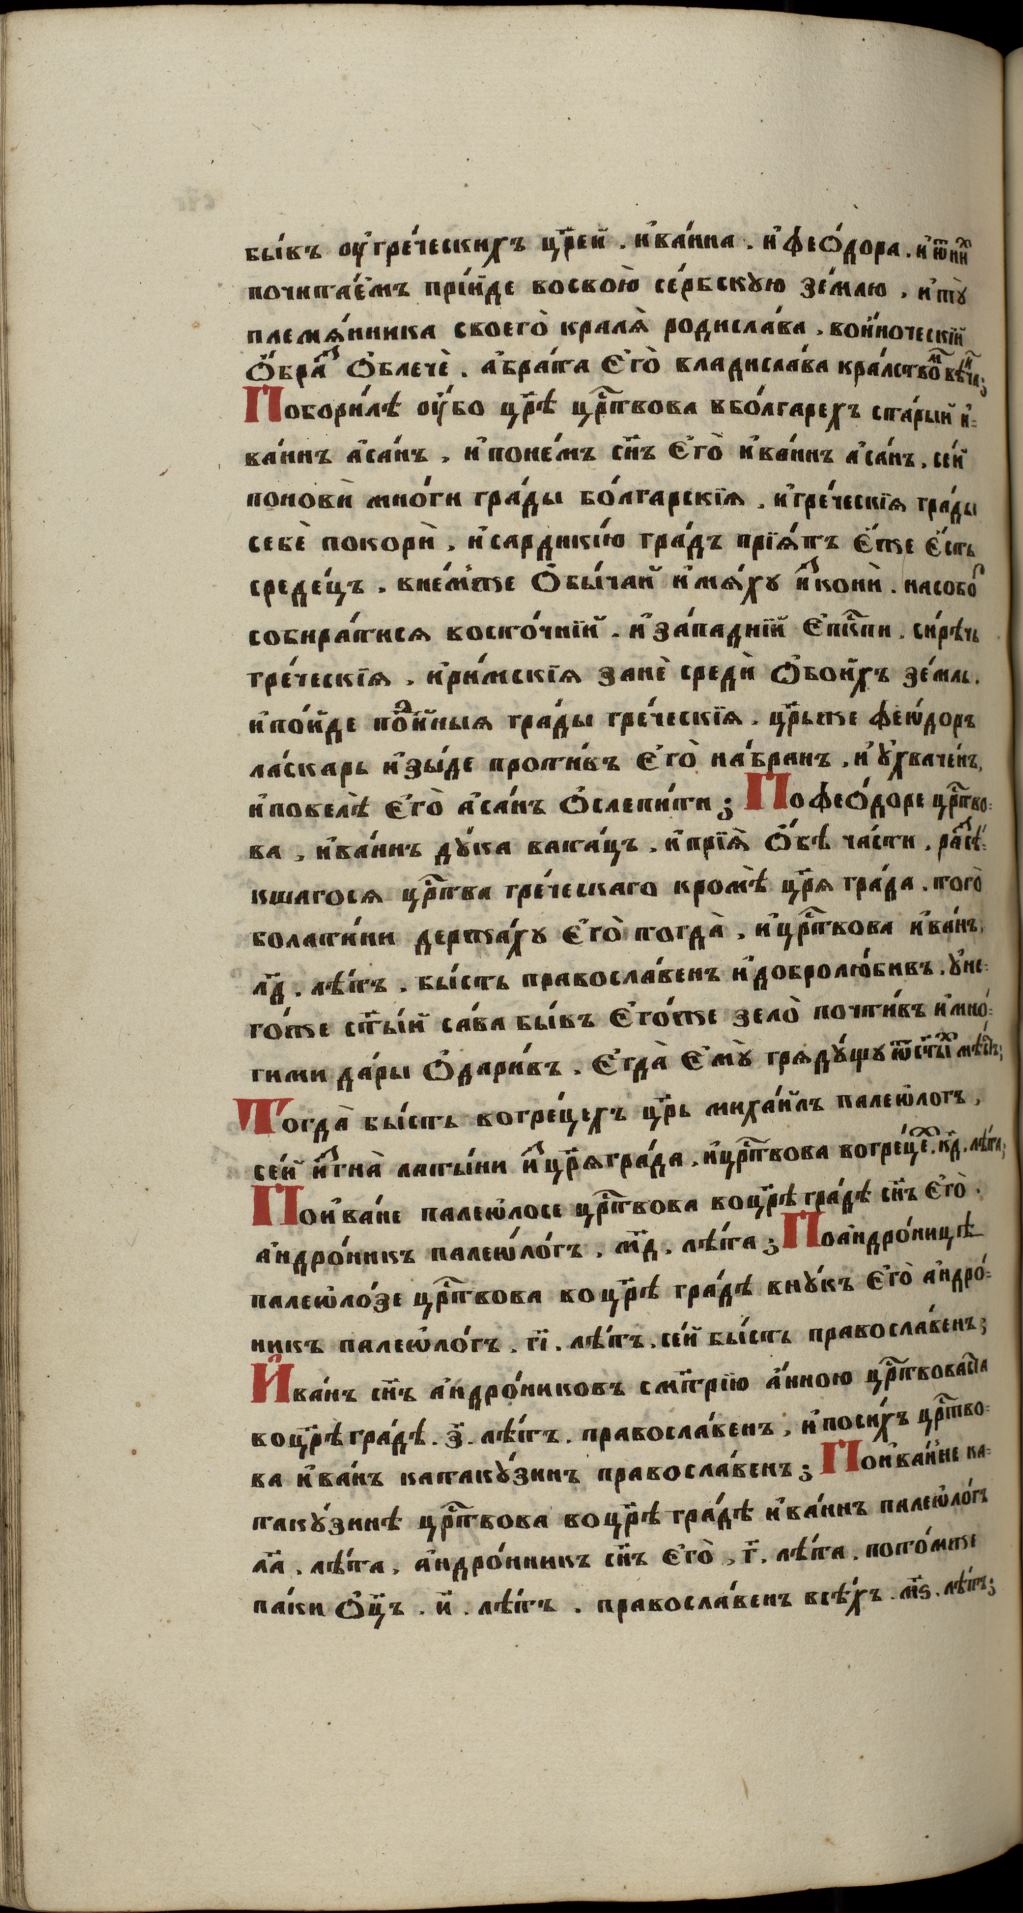 бы́въ ѹ҆гре́ческихъ цр҃е́й . и҆ва́нна . и҆ ѳео́дора . и҆ ѿни́х
почита́емъ прїи́де восвою̀ се́рбскую зе́млю , и҆тꙋ̀
племѧ́нника своего̀ кралѧ̀ родисла́ва , во́иноческїй
ѻ҆́браз ѻ҆блечѐ . а҆бра́та є҆го̀ владисла́ва кра́лствомъ вѣнча ;
Поборилѣ ѹ҆́бо цр҃ѣ црⷭ҇твова вбо́лгарехъ ста́рый и҆-
ва́ннъ а҆са́нъ , и҆поне́мъ сн҃ъ є҆го̀ и҆ва́ннъ а҆са́нъ , се́й
понови̇̀ мно́ги гра́ды бо́лгарскїѧ , и҆гре́ческїѧ гра́ды
себѐ покорѝ , и҆сарди́кїю гра́дъ прїѧ́тъ є҆́же є҆́сть
среде́цъ . вне́мже ѻ҆бы́чай и҆мѧ́ху и҆сконѝ . насобо́р
собира́тисѧ восто́чнїй . и҆за́паднїй є҆пⷭ҇кпи . си́рѣчь
гре́ческїѧ , и҆ри́мскїѧ занѐ средѝ ѻ҆бои́хъ зе́мль .
и҆по́йде под и҆ны́ѧ гра́ды гре́ческїѧ . цр҃ьже феѡ́доръ
ла́скарь и҆зы́де проти́въ є҆го̀ на́брань , и҆ ꙋ҆хваче́нъ ,
и҆повелѣ̀ є҆го̀ а҆са́нъ ѻ҆слепи́ти ; По ѳео́доре црⷭ҇тво-
ва , и҆ва́ннъ дꙋ́ка вата́цъ . и҆прїѧ̀ ѻ҆́бѣ ча́сти , расѣ́-
кшагосѧ црⷭ҇тва гре́ческаго кро́мѣ цр҃ѧ гра́да . того̀
болати́ни держа́ху є҆го̀ тогда̀ , и҆црⷭ҇твова и҆ва́нъ ,
л҃д . лѣ́тъ . бы́сть правосла́венъ и҆добролю́бивъ . ꙋ҆не-
го́же ст҃ы́й са́ва бы́въ є҆го́же зело̀ почти́въ и҆мно́-
гими да́ры ѻ҆дари́въ . є҆гда̀ є҆мꙋ̀ грѧдꙋ́щу ѿст҃ы́х мѣ́стъ ;
Тогда̀ бы́сть вогре́цехъ цр҃ь миха́илъ палеѡ́логъ ,
се́й и҆згна̀ латы́ни и҆з цр҃ѧгра́да , и҆црⷭ҇твова вогре́цех . к҃д . лѣ́та ;
По и҆ва́не палеѡ́лозе црⷭ҇твова воцр҃ѣгра́дѣ сн҃ъ є҆го̀ .
а҆ндро́никъ палеѡ́логъ . м҃д . лѣ́та ; По а҆ндро́ницѣ
палеѡло́зе црⷭ҇твова во цр҃ѣ гра́дѣ внꙋ́къ є҆го̀ а҆ндро́-
никъ палеѡло́гъ . г҃і . лѣ́тъ . се́й бы́сть правосла́венъ ;
И҆ва́нъ сн҃ъ а҆ндро́никовъ сма́трїю а҆́нною црⷭ҇твоваста
во цр҃ѣ гра́дѣ . з҃ . лѣ́тъ . правосла́венъ , и҆поси́хъ црⷭ҇тво-
ва и҆ва́нъ катакꙋ́зинъ правосла́венъ ; По и҆ва́нне ка-
такꙋ́зинѣ црⷭ҇твова во цр҃ѣ гра́дѣ и҆ва́ннъ палеѡло́гъ
л҃а . лѣ́та , а҆ндро́нникъ сн҃ъ є҆го̀ , г҃ . лѣ́та . пото́мже
па́ки ѻ҆ц҃ъ . и҃ . лѣ́тъ . правосла́венъ всѣ́хъ . м҃ѕ . лѣ́тъ ;